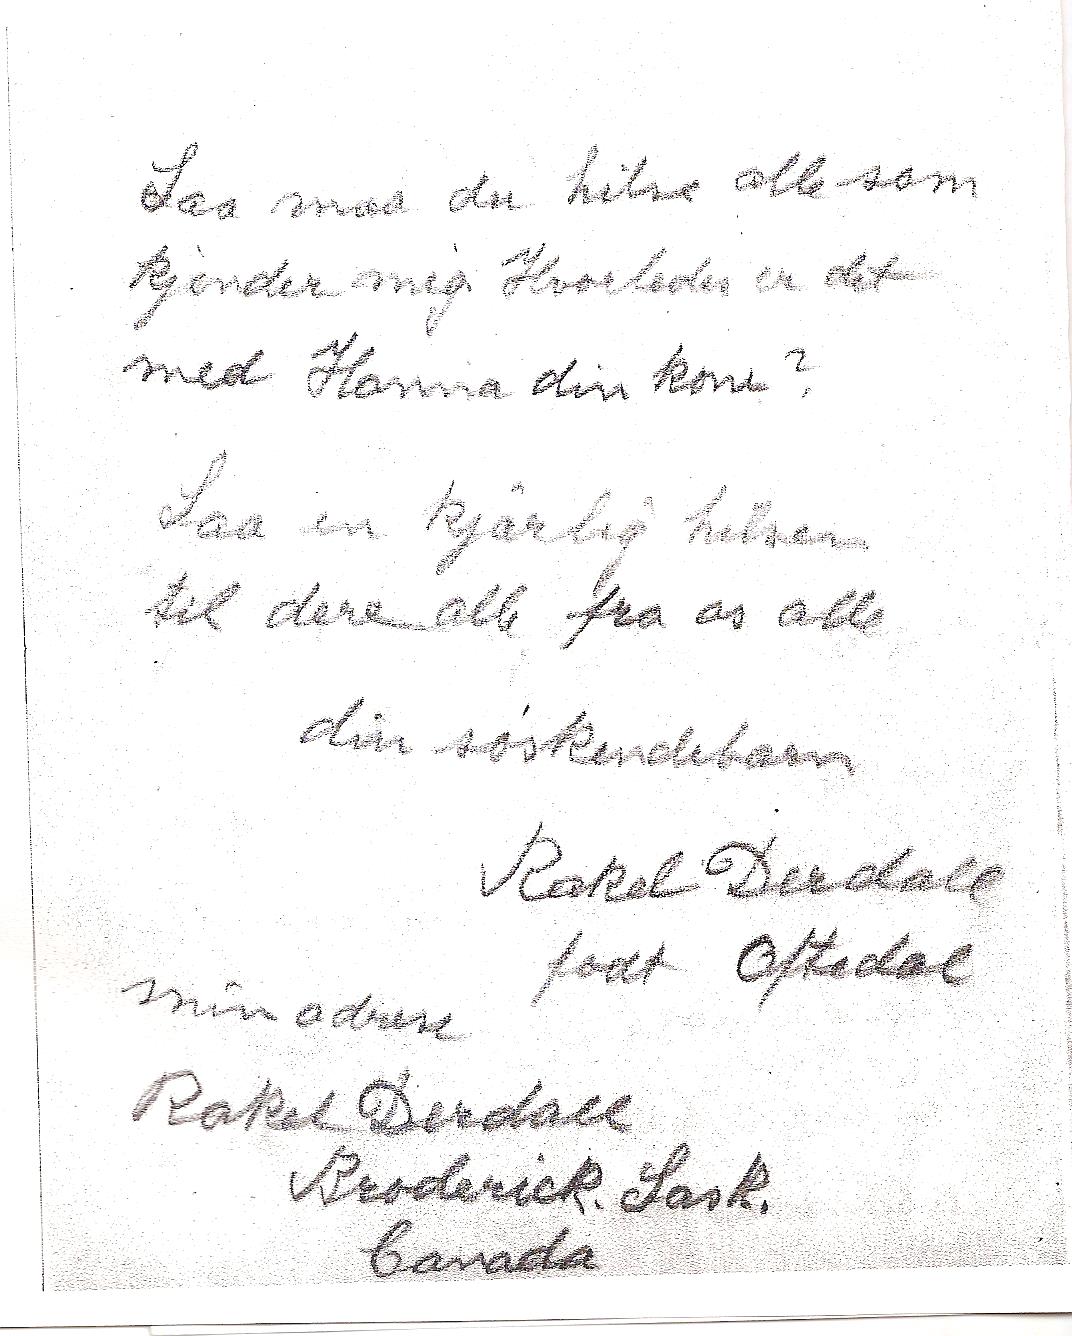 Saa maa du hilse alle som
kjender mig. Hvorledes er det
med Hanna din kone?
Saa en kjärlig hilsen
til dere alle fra os alle
din söskendebarn
Rakel Derdall
fodt Oftedal
min adrese
Rakel Derdall
Broderick. Sask.
Canada